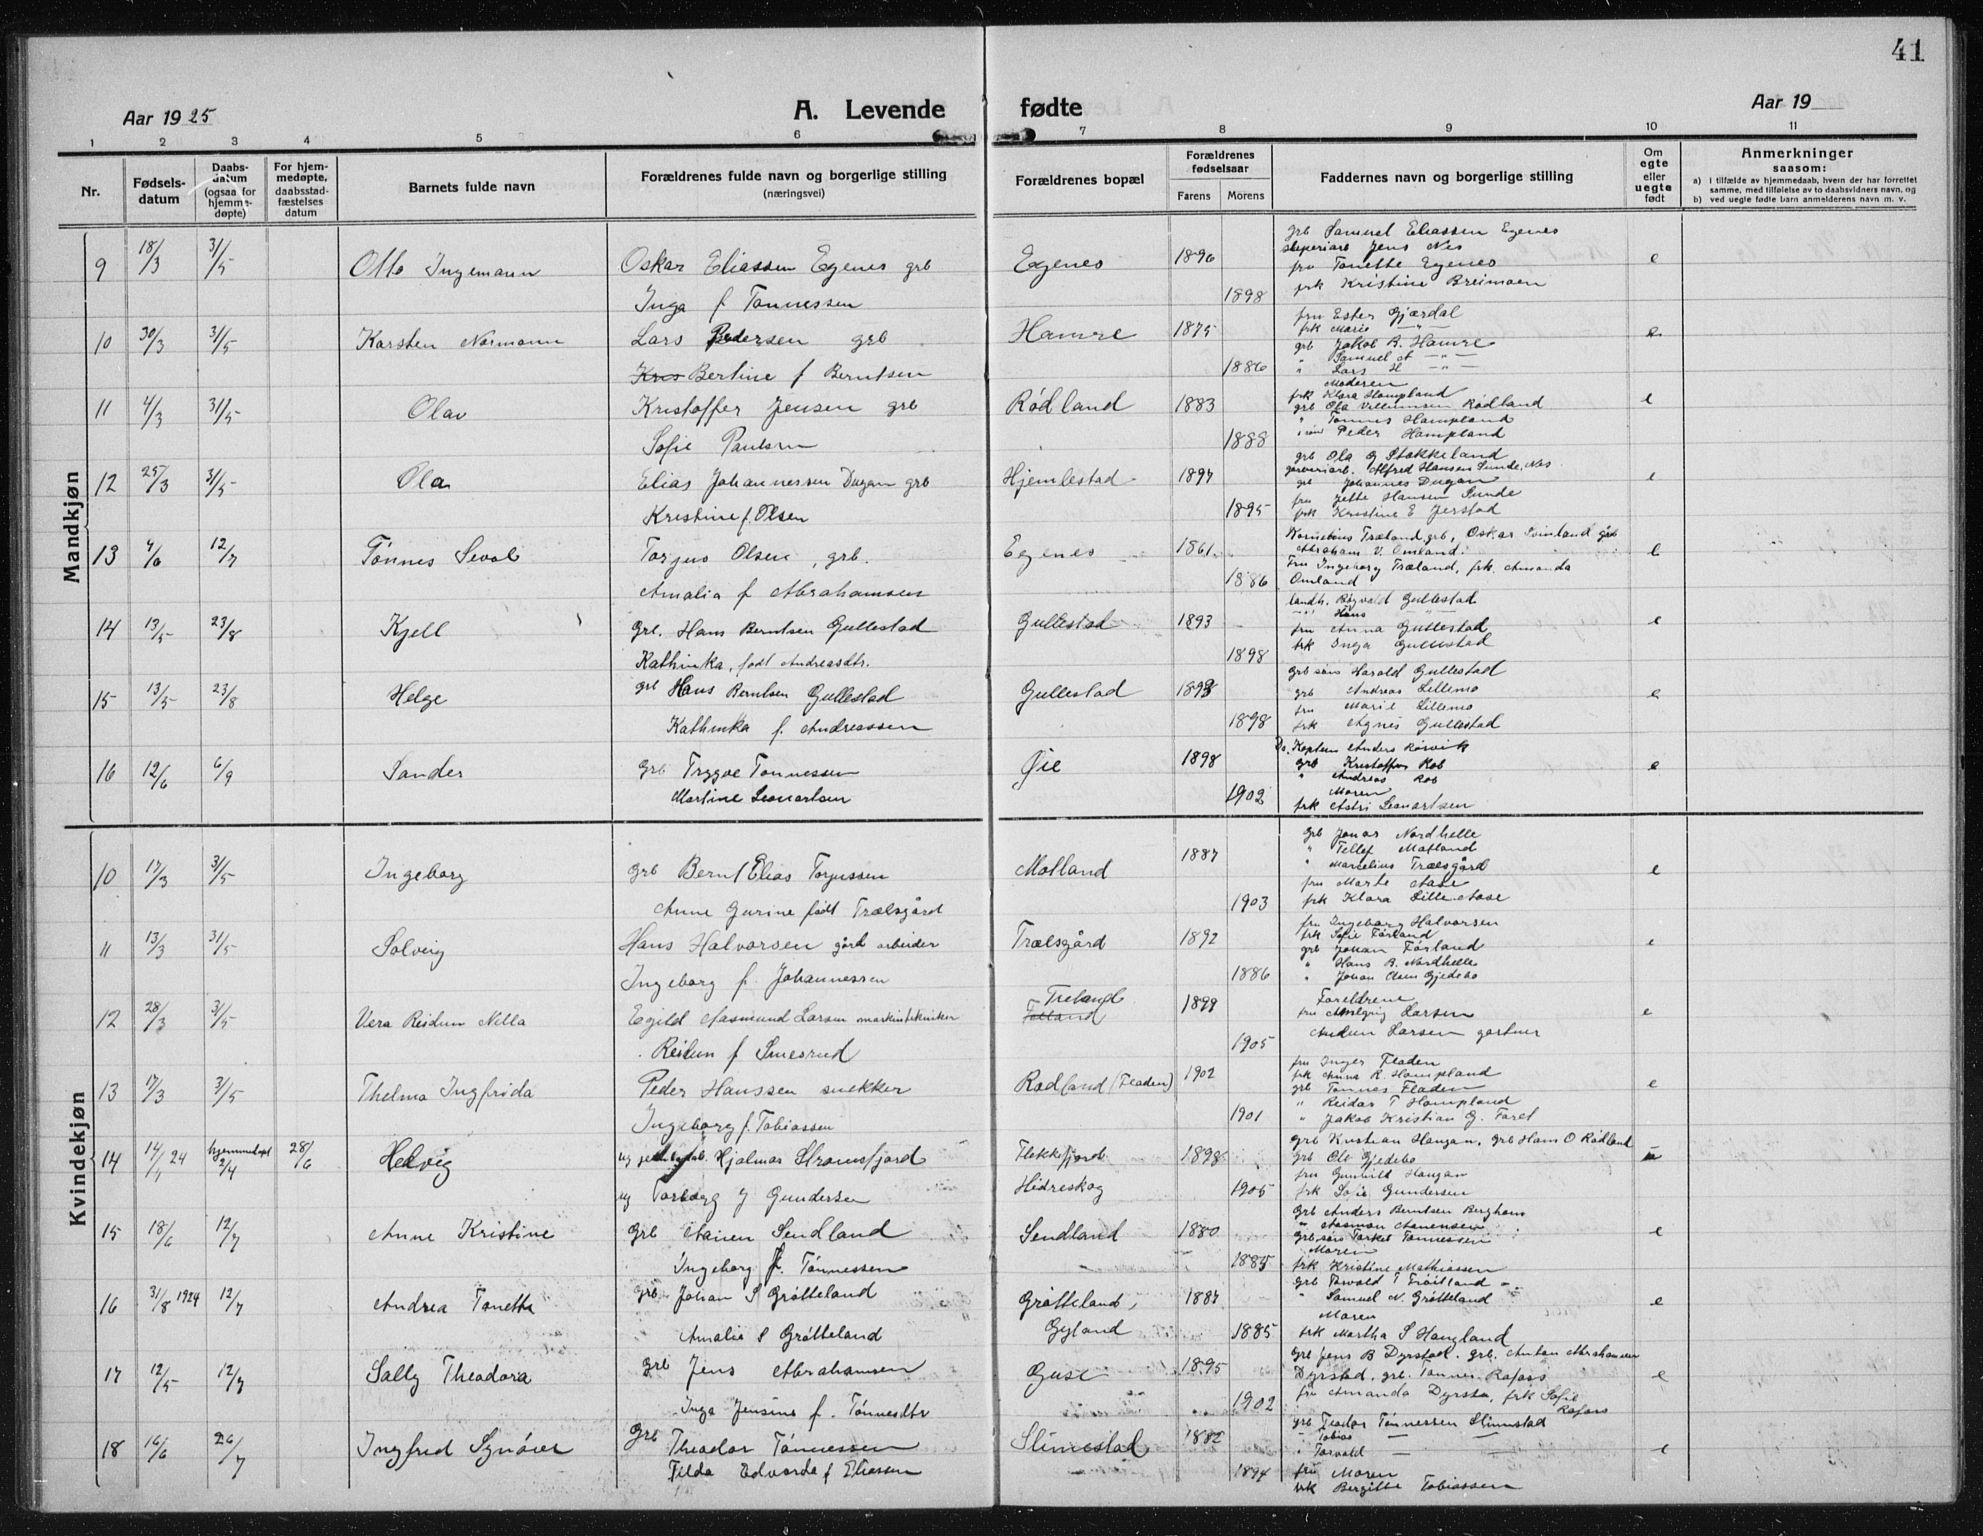 41
Aar 1925
A. Levende fødte
Aar 19
1 2 3 4 5 6 7 8 9 10 11
Nr.
Fødsels-datum
Daabs-datum (ogsaa for hjemme-døpte)
For hjem-medøpte, daabsstad-fæstelses datum
Barnets fulde navn
Forældrenes fulde navn og borgerlige stilling
(næringsvei)
Forældrenes bopæl
Forældrenes fødselsaar
Farens Morens
Faddernes navn og borgerlige stilling
Om egte eller uegte født
Anmerkninger
saasom:
a) i tilfælde av hjemmedaab, hvern der har forrettet samme, med tilføielse av to daabsvidners navn, og
b) ved uegte fødte barn anmelderens navn m. v.
Mandkjøn
9 18/3 31/5 Otto Ingemann Oskar Eliassen Egenes grb Egenes 1896 e
Inga f Tønnessen 1898
grb Samuel Eliassen Egenes
Jens Nes
fru Tonette Egenes
frk Kristine Breimoen
10 30/3 31/5 Karsten Normann Lars Pedersen grb Hamre 1875 e
Kris Bertine f Berntsen 1886
fru Ester Gjærdal
frk Marie — " —
grb Jakob B. Hamre
" Samuel A — " —
" Lars H — " —
11 4/3 31/5 Olav Kristoffer Jensen grb Rødland 1883 e
Sofie Paulsen 1888
Moderen
frk Klara Hampland
grb Ola Villumsen Rødland
" Tønnes Hampland
Peder Hampland
12 25/3 31/5 Ola Elias Johannessen Dugan grb Hjemlestad 1897 e
Kristine f. Olsen 1895
grb Ola O Stokkeland
garveriarb. Alfred Hansen Sunde, Nes
grb Johannes Dugan
fru Jette Hansen Sunde
frk Kristine E Jerstad
13 4/6 12/7 Tønnes Seval Torjus Olsen, grb. Egenes 1861 e
Amalia f Abrahamsen 1886
Kornelius Træland grb, Oskar Svinland grb
Abraham V. Omland.
Fru Ingeborg Træland, frk. Amanda
Omland
14 13/5 23/8 Kjell Grb. Hans Berntsen Gullestad Gullestad 1893 e
Kathinka, født Andreasdtr. 1898
landh. Røgvald Gullestad
— " — Hans — " —
fru Anna Gullestad
frk Inga Gullestad
15 13/5 23/8 Helge grb Hans Berntsen Gullestad Gullestad 1893 e
Kathinka f. Andreassen 1898
grb søn Harald Gullestad
grb Andreas Lillemo
fru Marie Lillemo
frk Agnes Gullestad
16 12/6 6/9 Sander grb Trygve Tønnessen Øie 1898 e
Martine Leonartsen 1902
Kaptein Anders Rørvik
grb Kristoffer Rob
" Andreas Rob
Moren
frk Astri Leonartsen
Kvindekjøn
10 17/3 31/5 Ingeborg grb Bernt Elias Torjussen Motland 1887 e
Anne Gurine født Trælsgård 1903
grb Jonas Nordhelle
" Tellef Motland
" Marcelius Trælsgård
fru Marte Aase
frk Klara Lille Aase
11 13/3 31/5 Solveig Hans Halvorsen gårdarbeider Trælsgård 1892 e
Ingeborg f. Johannessen 1886
fru Ingeborg Halvorsen
frk Sofie Førland
grb Johan Førland
" Hans B. Nordhelle
" Johan Olsen Gjedebo
12 28/3 31/5 Vera Reidun Nilla Egild Aasmund Larsen maskintekniker Treland 1899 e
Reidun f Smesrud 1905
Foreldrene
fru Larsen
Audun Larsen gartner
13 17/3 31/5 Thelma Ingfrida Peder Hanssen snekker Rødland (Fladen) 1902 e
Ingeborg f. Tobiassen 1901
fru Inger Fladen
frk Anna R. Hampland
grb Tønnes Fladen
" Reidar T Hampland
" Jakob Kristian G. Foret
14 14/1 24 hjemmedøpt 2/4 28/6 Helvig Hjalmar Strømsfjord Flekkefjord 1898
ug Torborg G Gundersen Hidreskog 1905
grb Kristian Haugan, grb Hans O Rødland
grb Ole Gjedebo
fru Gunhild Haugan
frk Sofie Gundersen
15 18/6 12/7 Anne Kristine Grb Aanen Sendland Sendland 1880 e
Ingeborg f. Tønnessen 1885
Grb Anders Berntsen Berghom
" Aasmon Aanensen
Grb. søn Torkel Tønnessen
Moren
frk Kristine Mathiassen
16 31/8 1924 12/7 Andrea Tonette grb Johan S Grøtteland Grøtteland, 1887 e
Amalie S Grøtteland Gyland 1885
grb Torvald T Frøitland
" Samuel N. Grøtteland
Moren
frk Martha S Haugland
17 12/5 12/7 Sally Theodora grb Jens Abrahamsen Guse 1895 e
Inga Jensine f. Tønnesdtr 1902
Grb Jens B Dyrstad. grb. Anton Abrahamsen
Dyrstad, grb. Tønnes Rafoss
fru Amanda Dyrsta, frk Sofie
Rafoss
18 16/6 26/7 Ingfred Synøver Grb Theodor Tønnessen Slimestad 1882 e
Tilda Edvarda f Eliassen 1894
grb Teodor Tønnessen Slimestad
" Tobias — —
" Torvald — —
fru Moren
frk Bergitte Tobiassen